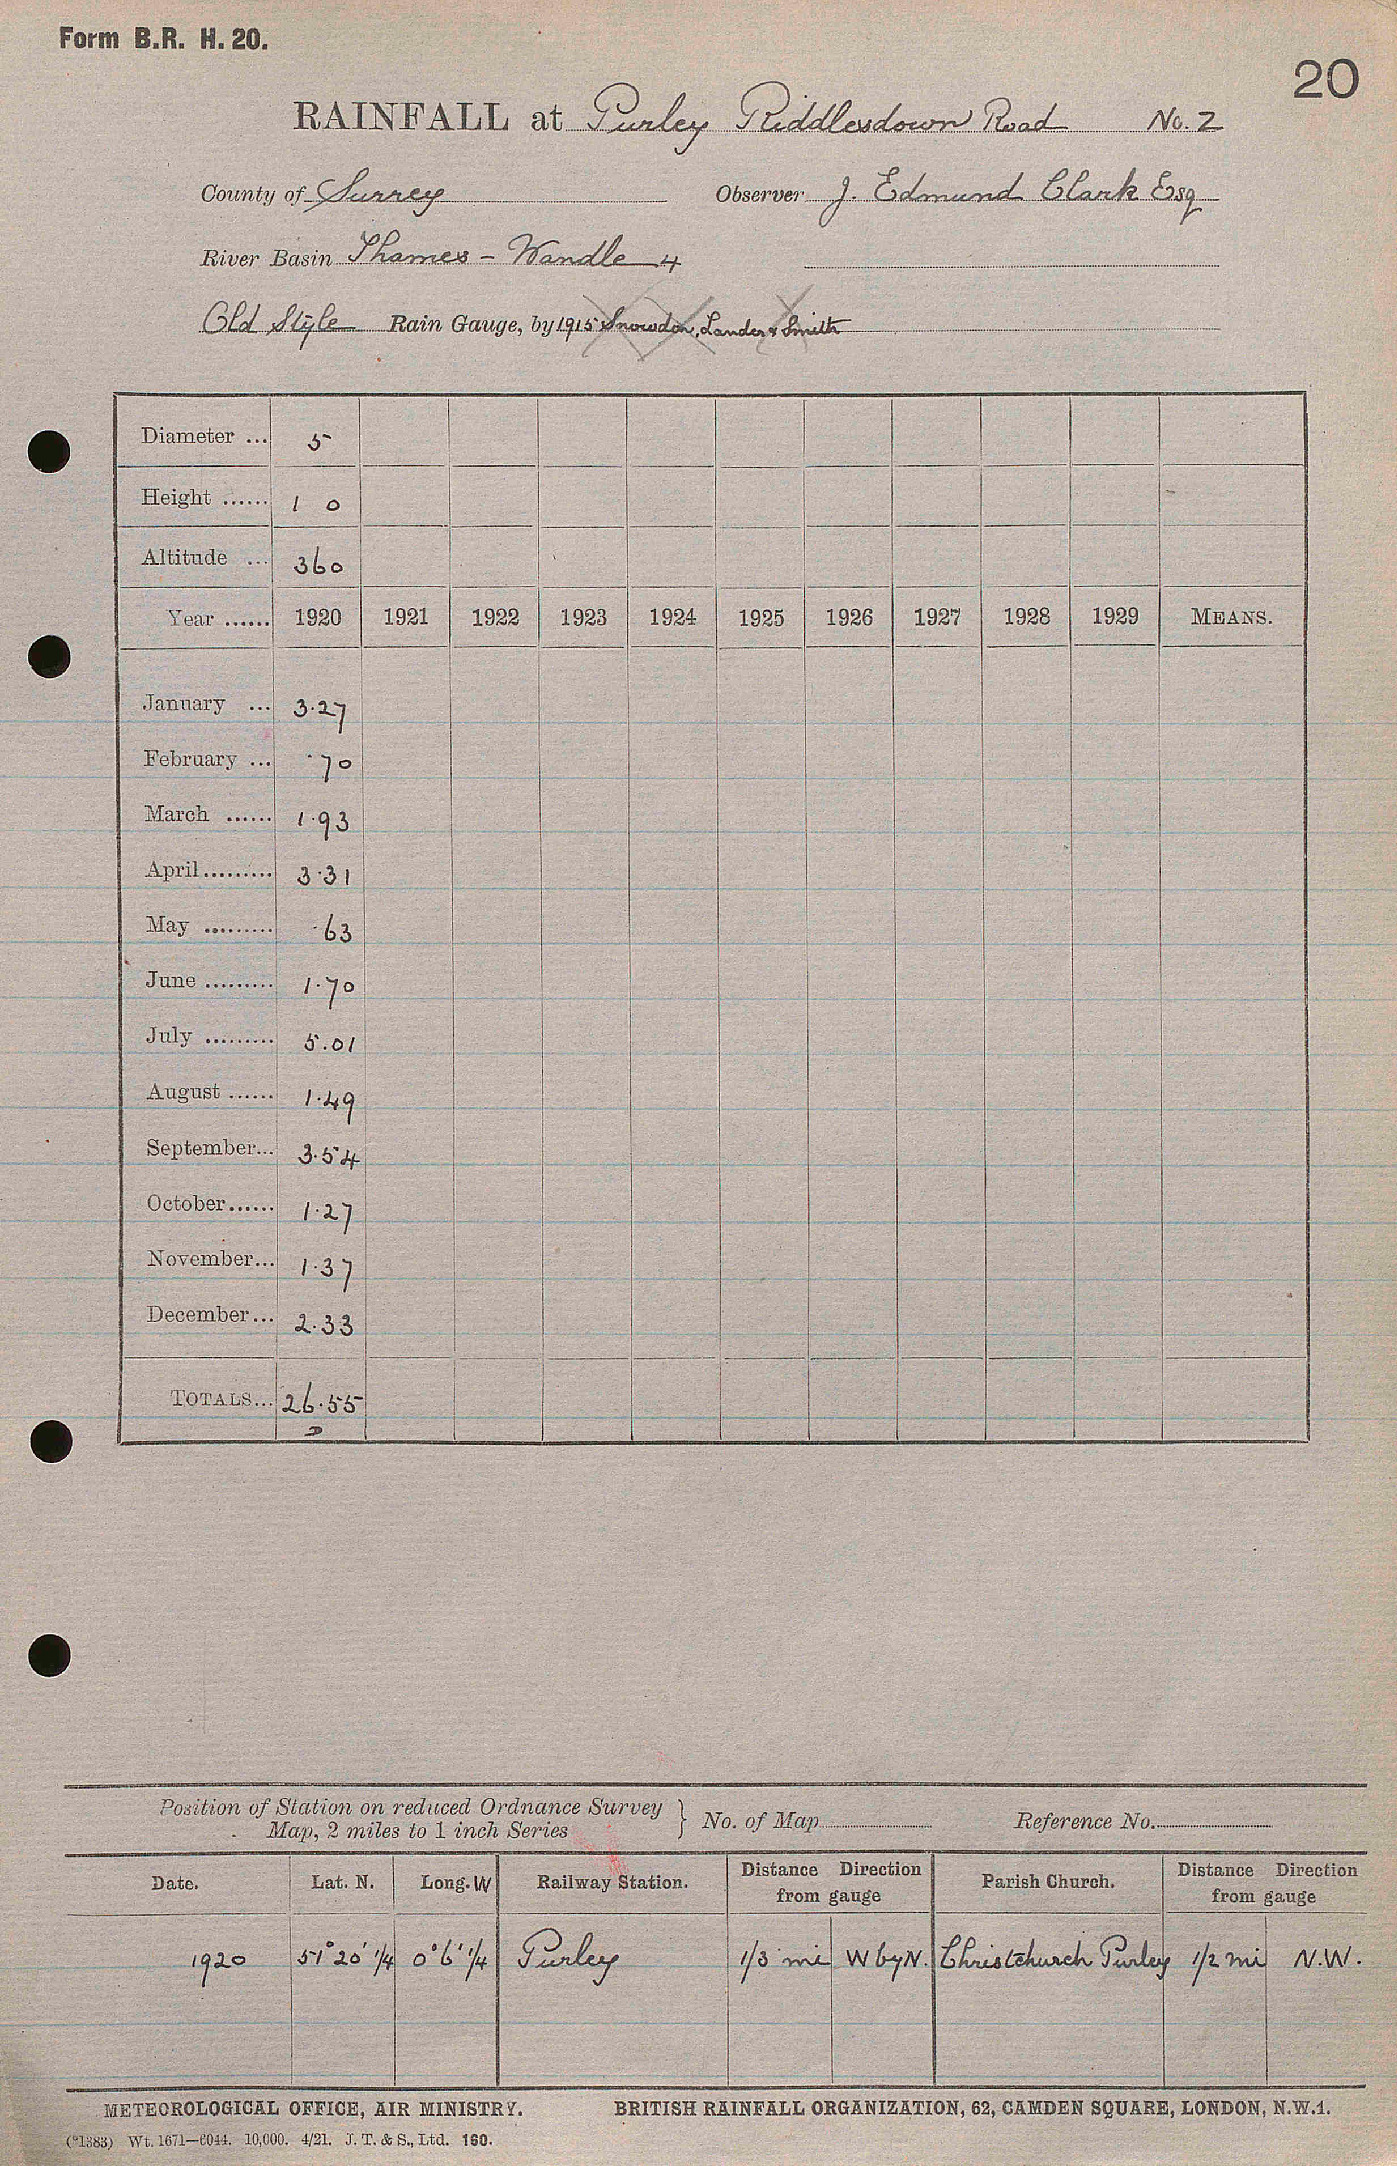 Form B.R. H. 20.
20
RAINFALL at Purley Riddlesdown Road No. 2
County of Surrey Observer J. Edmund Clark Esq
River Basin Thames - Wandle 4
Old Style Rain Gauge, by 1915 Snowdon, Lander & Smith
Diameter ... 5
Height ...... 1 0
Altitude ... 360
Year ...... 1920 1921 1922 1923 1924 1925 1926 1927 1928 1929 MEANS.
January ... 3.27
February ... .70
March ...... 1.93
April ......... 3.31
May ......... .63
June ......... 1.70
July ......... 5.01
August ...... 1.49
September... 3.54
October...... 1.27
November... 1.37
December... 2.33
TOTALS... 26.55
Position of Station on reduced Ordnance Survey
Map, 2 miles to 1 inch Series } No. of Map Reference No.
Date. Lat. N. Long. W Railway Station. Distance Direction from gauge Parish Church. Distance Direction from gauge
1920 51° 20' 1/4 0° 6' 1/4 Purley 1/3 mi W by N. Christchurch Purley 1/2 mi N.W.
METEOROLOGICAL OFFICE, AIR MINISTRY. BRITISH RAINFALL ORGANIZATION, 62, CAMDEN SQUARE, LONDON, N.W.1.
(*1383) Wt. 1671—6044. 10,000. 4/21. J. T. & S., Ltd. 160.